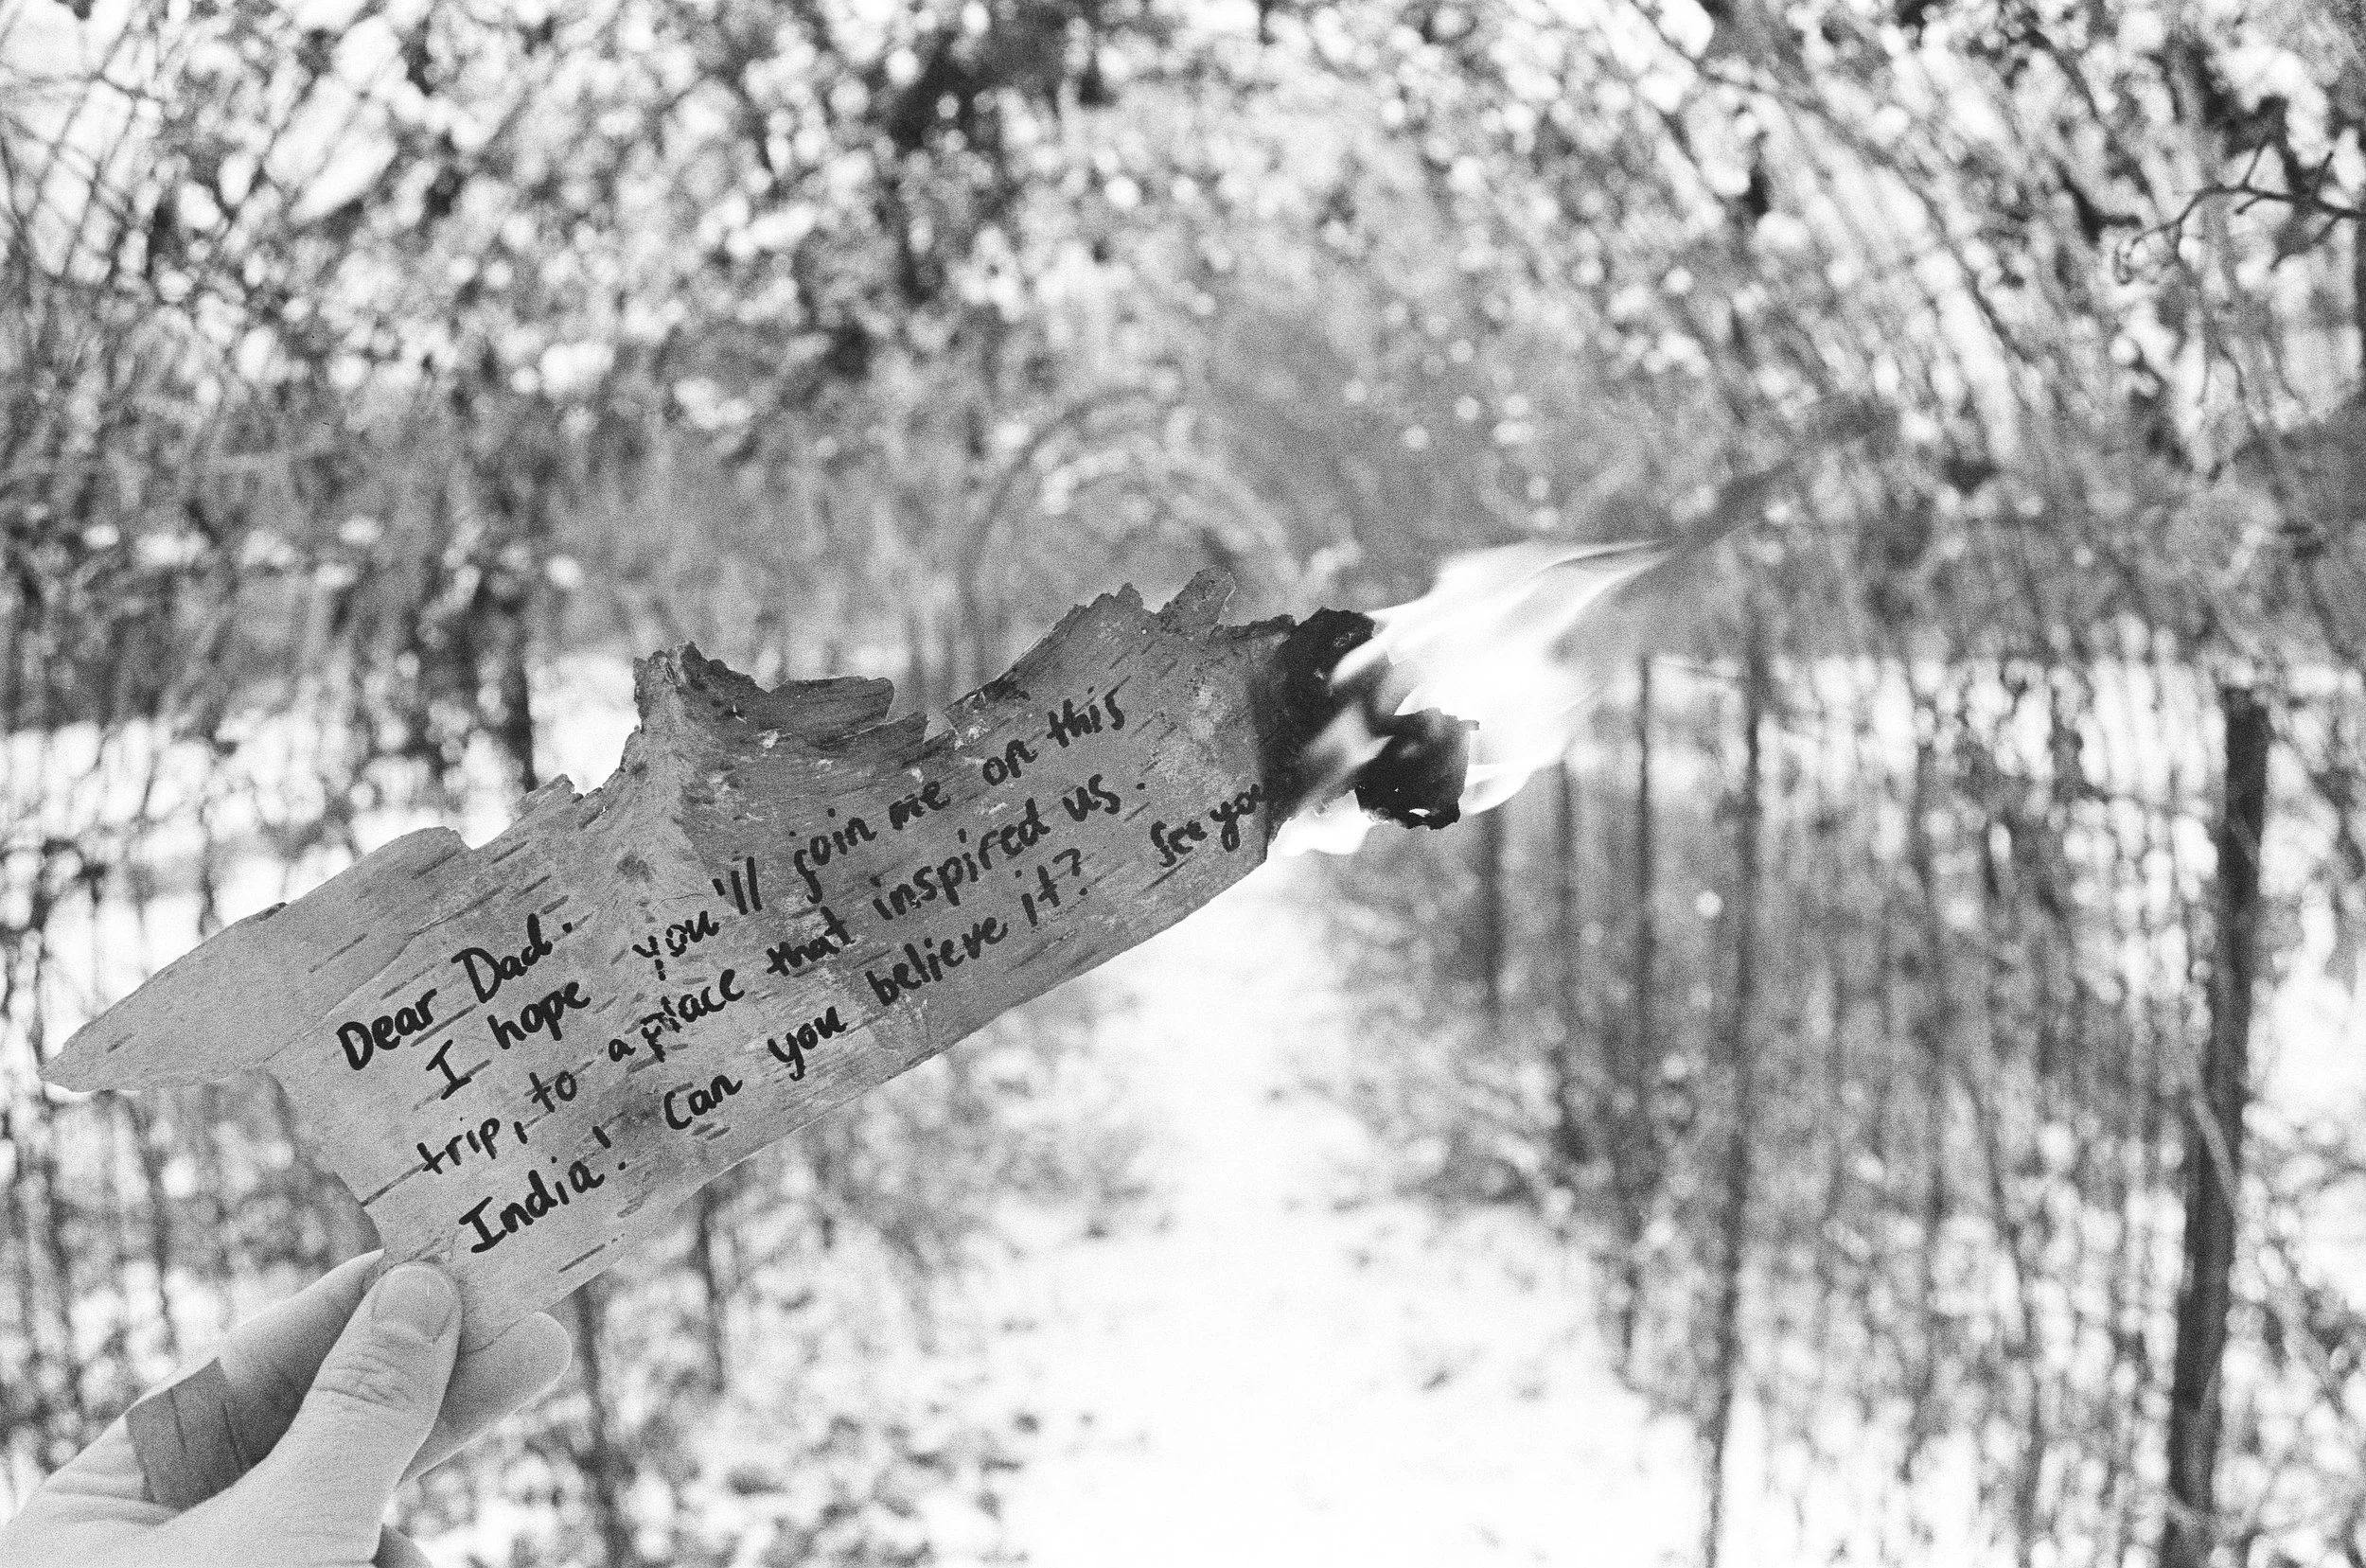 Dear Dad:
I hope you'll join me on this
trip, to a place that inspired us.
India! Can you believe it? See you